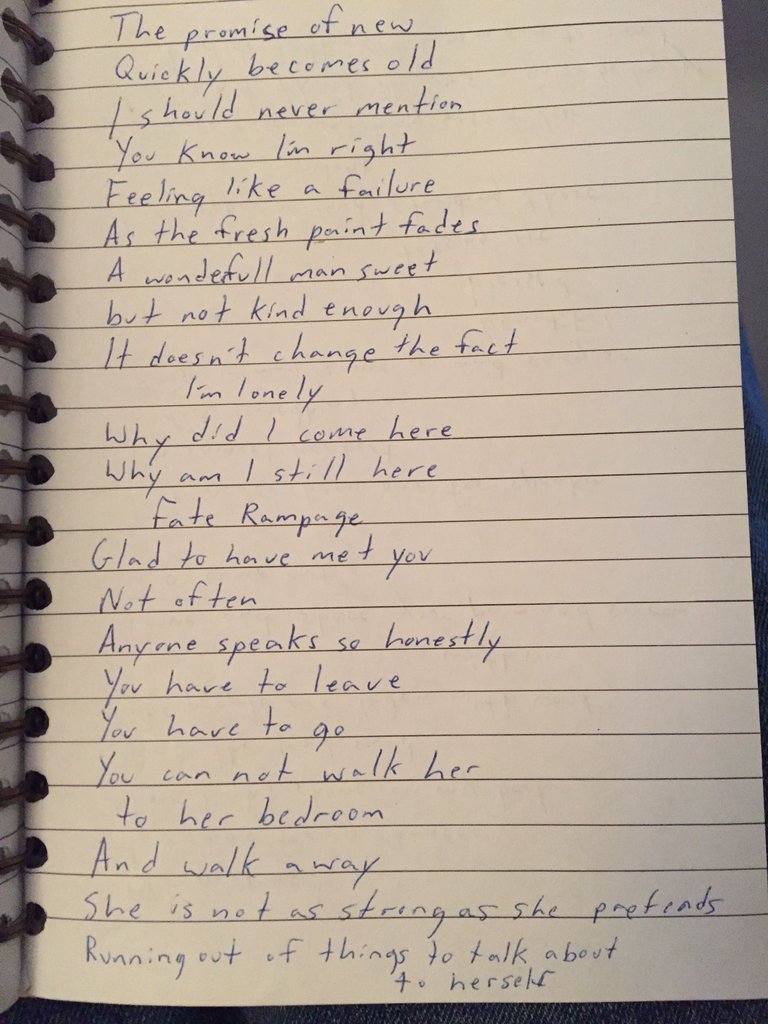 The promise of new
Quickly becomes old
I should never mention
You know I'm right
Feeling like a failure
As the fresh paint fades
A wondefull man sweet
but not kind enough
It doesn't change the fact
I'm lonely
Why did I come here
Why am I still here
Fate Rampage
Glad to have met you
Not often
Anyone speaks so honestly
You have to leave
You have to go
You can not walk her
to her bedroom
And walk away
She is not as strong as she pretends
Running out of things to talk about
to herself